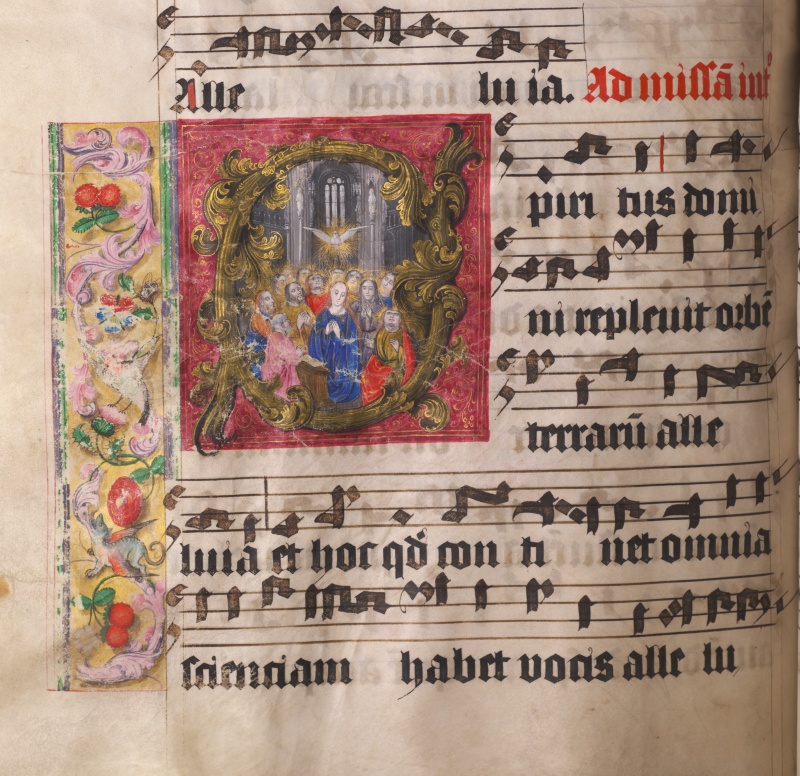 Alle lu ia. Ad missā int
piri tus domi
ni repleuit orbē
terrarū alle
luia et hoc qd con ti net omnia
scienciam habet vocis alle lu